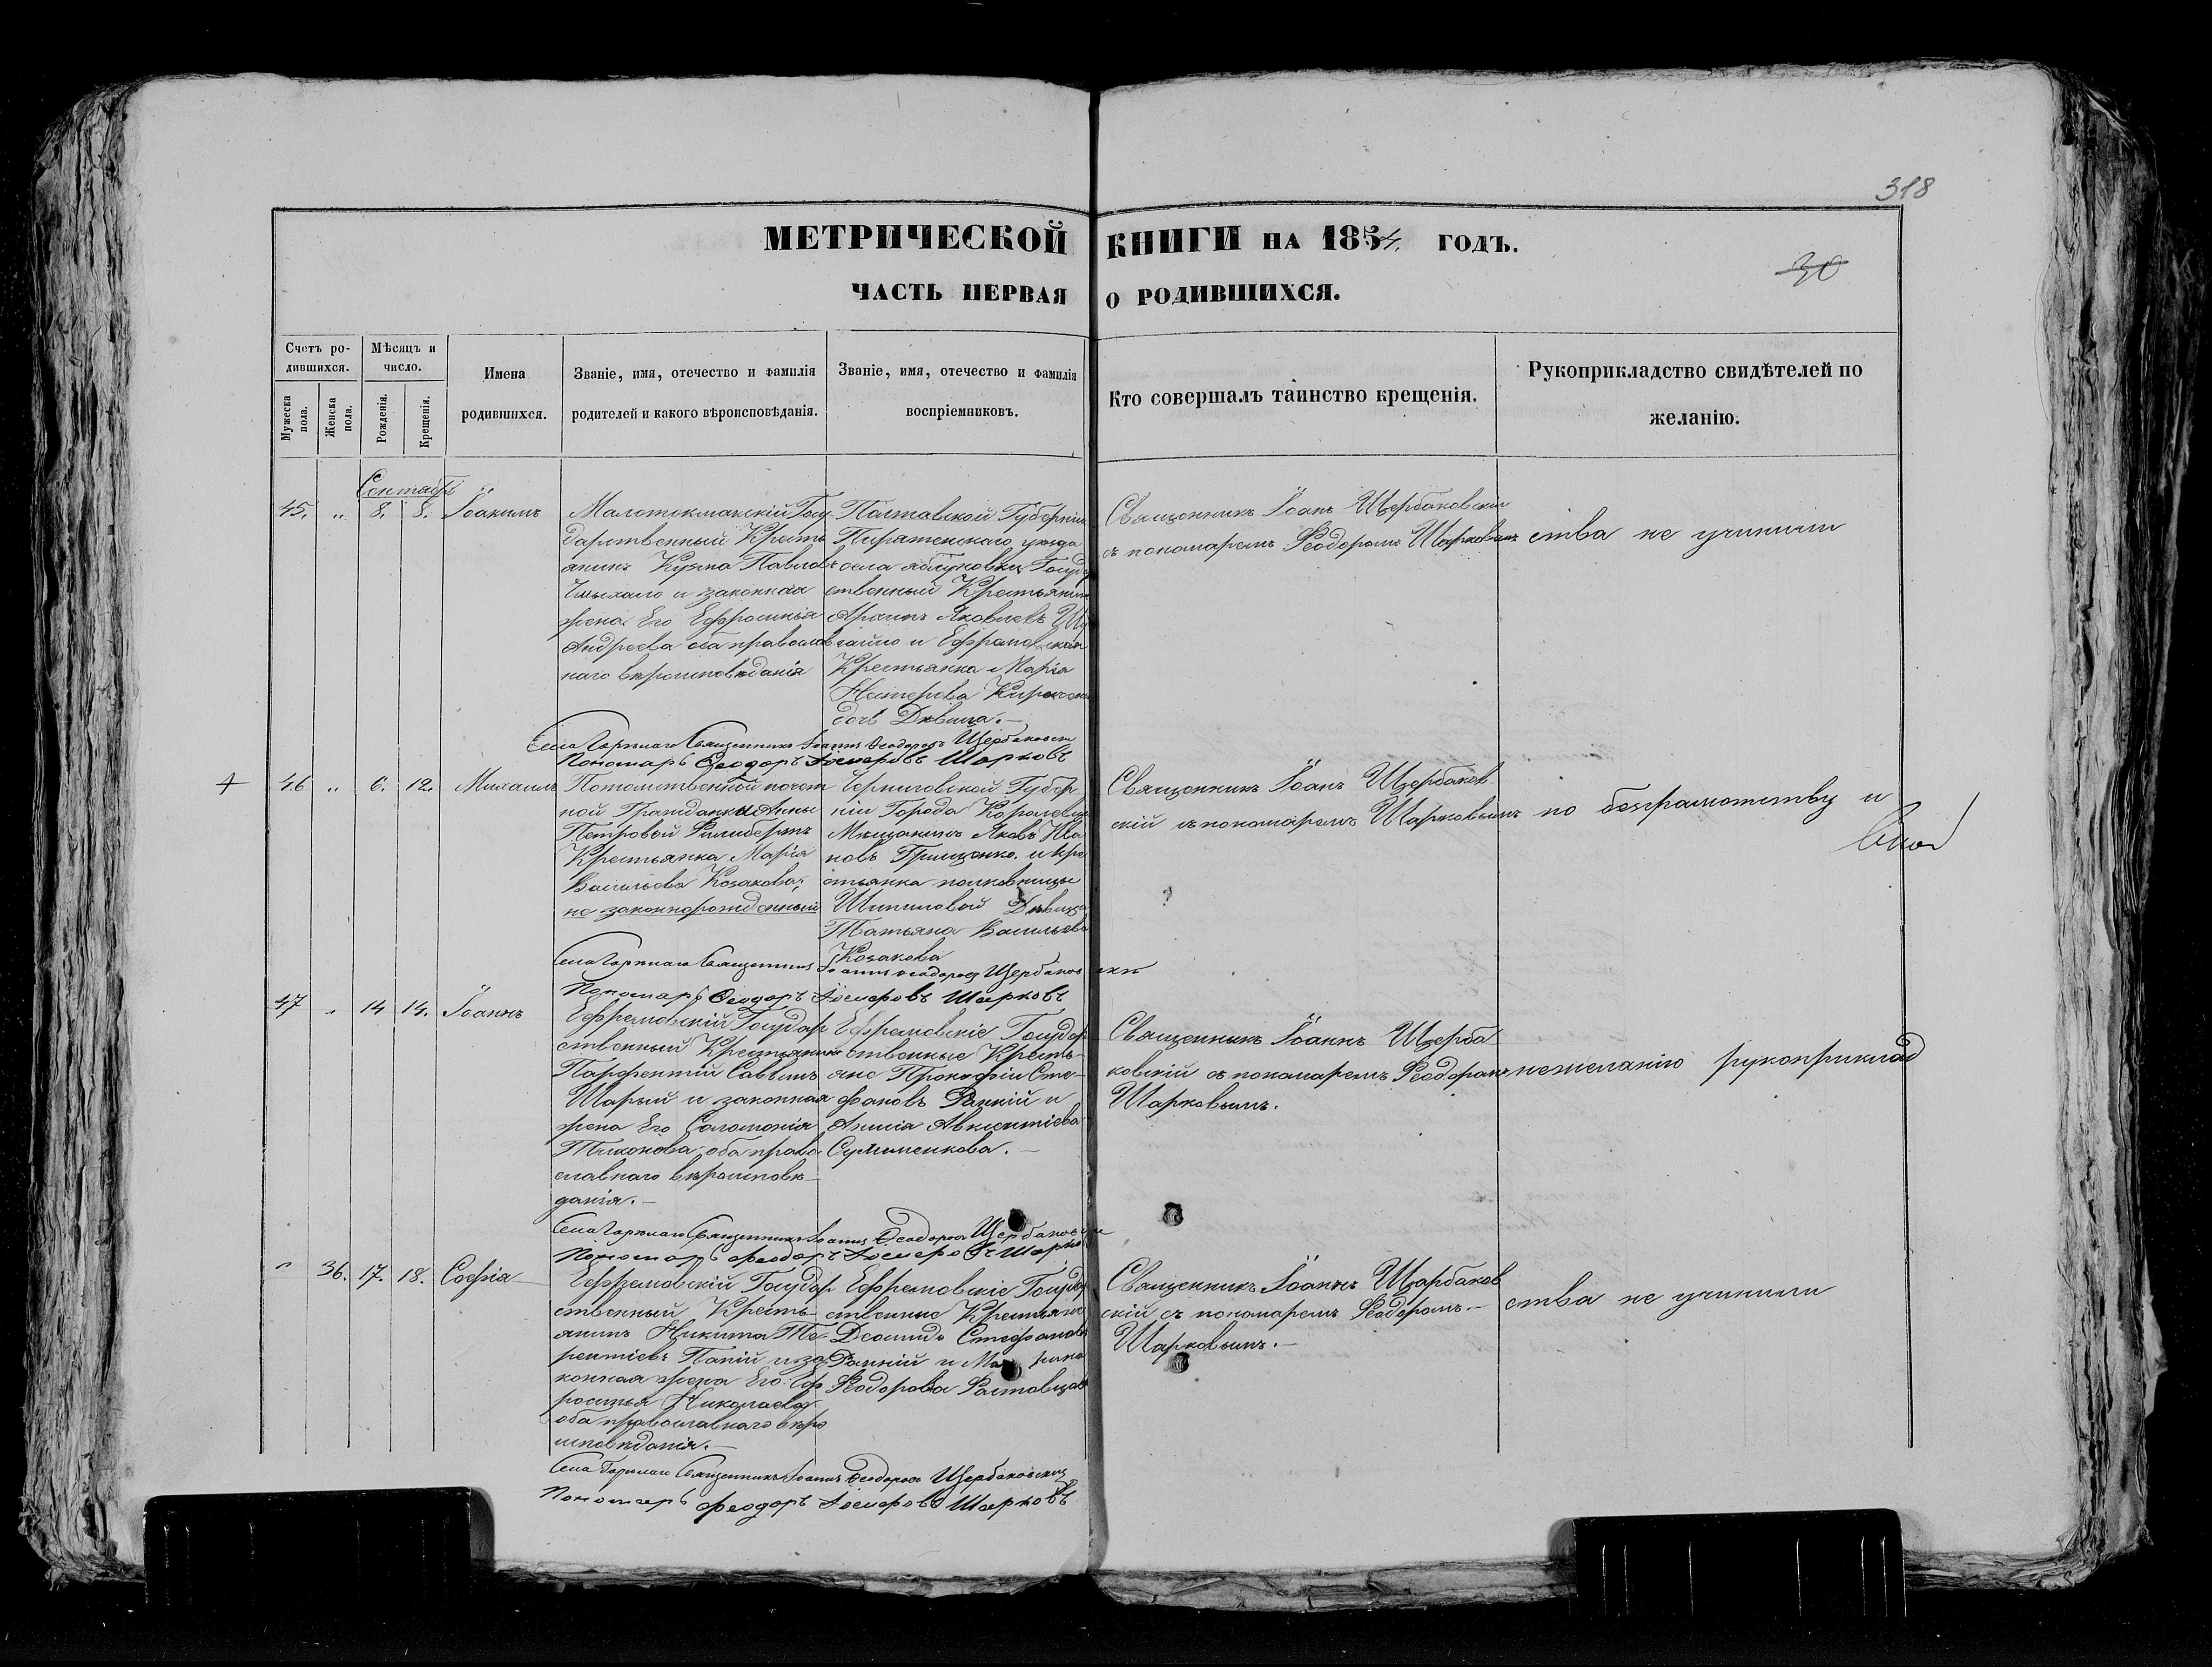 318
МЕТРИЧЕСКОЙ КНИГИ НА 1854. ГОДЪ.
30
ЧАСТЬ ПЕРВАЯ О РОДИВШИХСЯ.
Счетъ ро-
дившихся.
Мужеска пола.
Женска пола.
Мѣсяцъ и
число.
Рожденія.
Крещенія.
Имена
родившихся.
Званіе, имя, отечество и фамилія
родителей и какого вѣроисповѣданія.
Званіе, имя, отечество и фамилія
воспріемниковъ.
Кто совершалъ таинство крещенія.
Рукоприкладство свидѣтелей по
желанію.
45. " 8. 8. Іоакимъ
Малотокмакскій Госу
дарственный Кресть
янинъ Кузма Павловъ
и законная
жена Его Ефросинія
Андреева оба православ
наго вѣроисповѣданія
Полтавской Губерніи
Пирятенскаго уѣзда
села Государ
ственный Крестьянинъ
Архипъ Яковлевъ
и Ефремовская
Крестьянка Марія
Нестерова
дочь Дѣвица.—
Священникъ Іоанъ Щербаковскій
съ пономаремъ Ѳеодоромъ Шарковымъ
ства не учинили
Священникъ Іоаннъ Ѳеодоровъ Щербаковскі
Пономарь Ѳеодоръ Іосифовъ Шарковъ
46 " 6. 12. Михаилъ
Потомственной почет
ной Гражданки Анны
Петровой
Крестьянка Марія
Васильева Козакова,
не законнорожденный
Черниговской Губер
ніи Города Королевца
Мѣщанинъ Яковъ Ива
новъ Грищенко. и кре
стьянка полковницы
Шипиловой Дѣвица
Татьяна Васильева
Козакова
Священникъ Іоанъ Щербаков
скій съ пономаремъ Шарковымъ
по безграмотству и
Священникъ Іоаннъ Ѳеодоровъ Щербаковскі
Пономарь Ѳеодоръ Іосифовъ Шарковъ
47 " 14 14. Іоаннъ
Ефремовскій Государ
ственный Крестьянинъ
Парфентій Саввинъ
Шарый и законная
жена Его Соломонія
Тихонова, оба право
славнаго вѣроисповѣ
данія.—
Ефремовскіе Государ
ственные Кресть-
яне Прокофій Сте-
фановъ и
Авксентіева
Священникъ Іоаннъ Щерба
ковскій съ пономаремъ Ѳеодоромъ
Шарковымъ.
нежеланію рукоприклад
Священникъ Іоаннъ Ѳеодоровъ Щербаковскі
Пономарь Ѳеодоръ Іосифовъ Шарковъ
" 36. 17. 18. Софія
Ефремовскій Государ
ственный Кресть-
янинъ Никита Те-
рентіевъ и за-
конная жена Его Еф
росинья Николаева
оба православнаго вѣро
исповѣданія.—
Ефремовскіе Государ
ственные Крестьяне
Стефановъ
и
Ѳеодорова
Священникъ Іоаннъ Щербаков
скій съ пономаремъ Ѳеодоромъ.—
Шарковымъ.—
ства не учинили
Священникъ Іоаннъ Ѳеодоровъ Щербаковскій
Пономарь Ѳеодоръ Іосифовъ Шарковъ